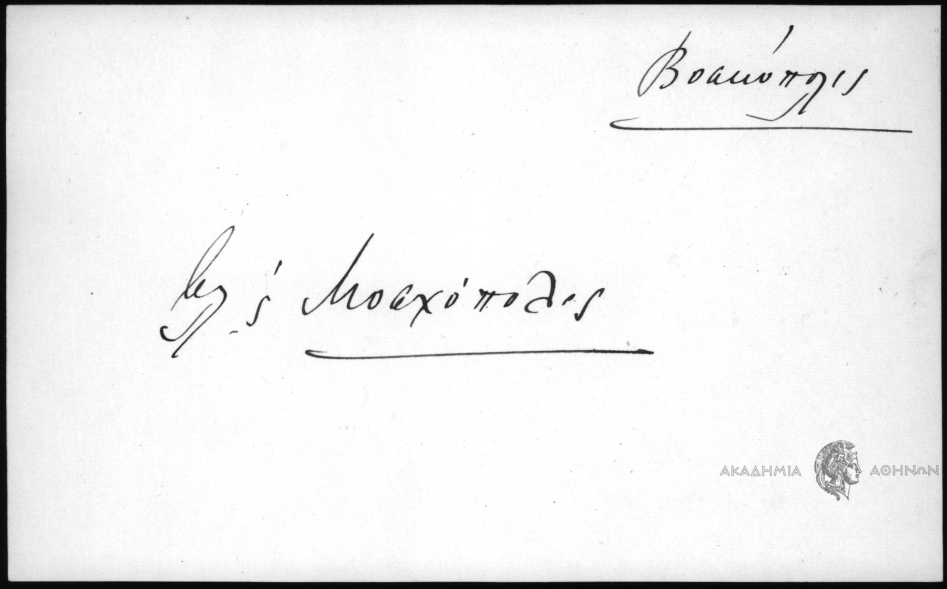 Βοσκόπολις
βλ. ς Μοσχόπολις
ΑΚΑΔΗΜΙΑ ΑΘΗΝΩΝ